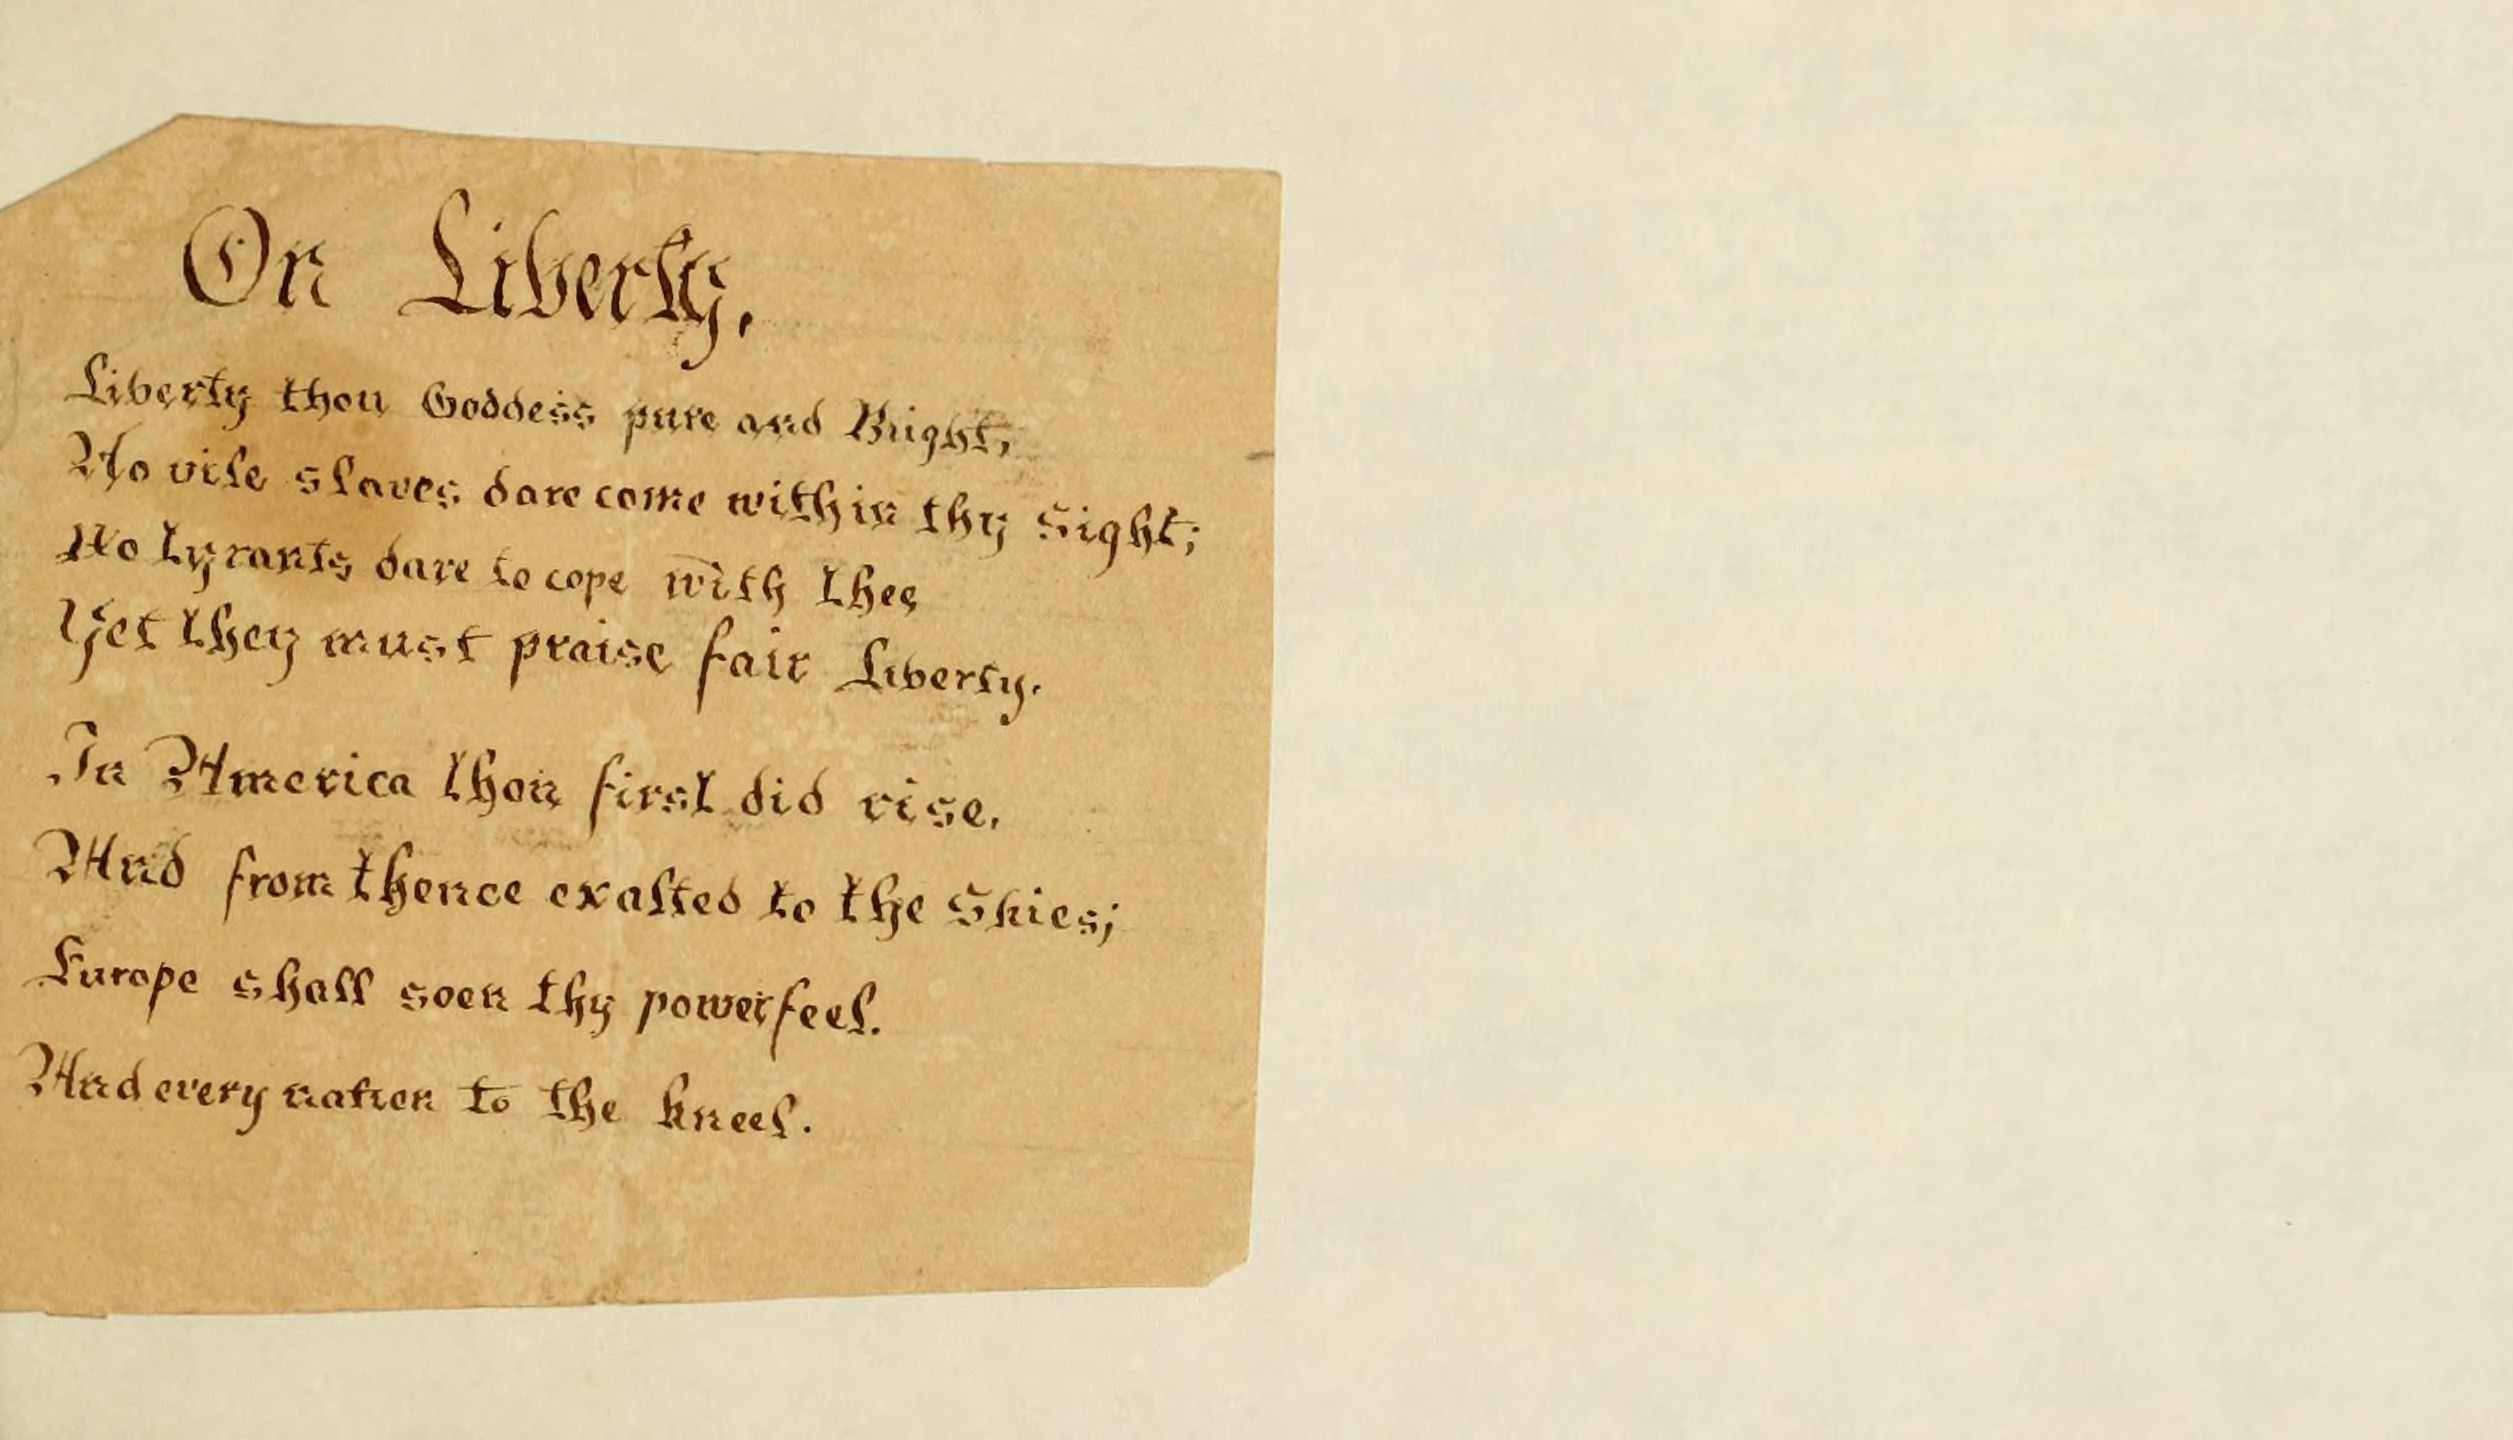 On Liberty.
Liberty thou Goddess pure and Bright,
No vile slaves dare come within thy Sight;
No tyrants dare to cope with thee
Yet they must praise fair Liberty.
In America thou first did rise.
And from thence exalted to the Skies;
Europe shall soon thy power feel.
And every nation to the kneel.